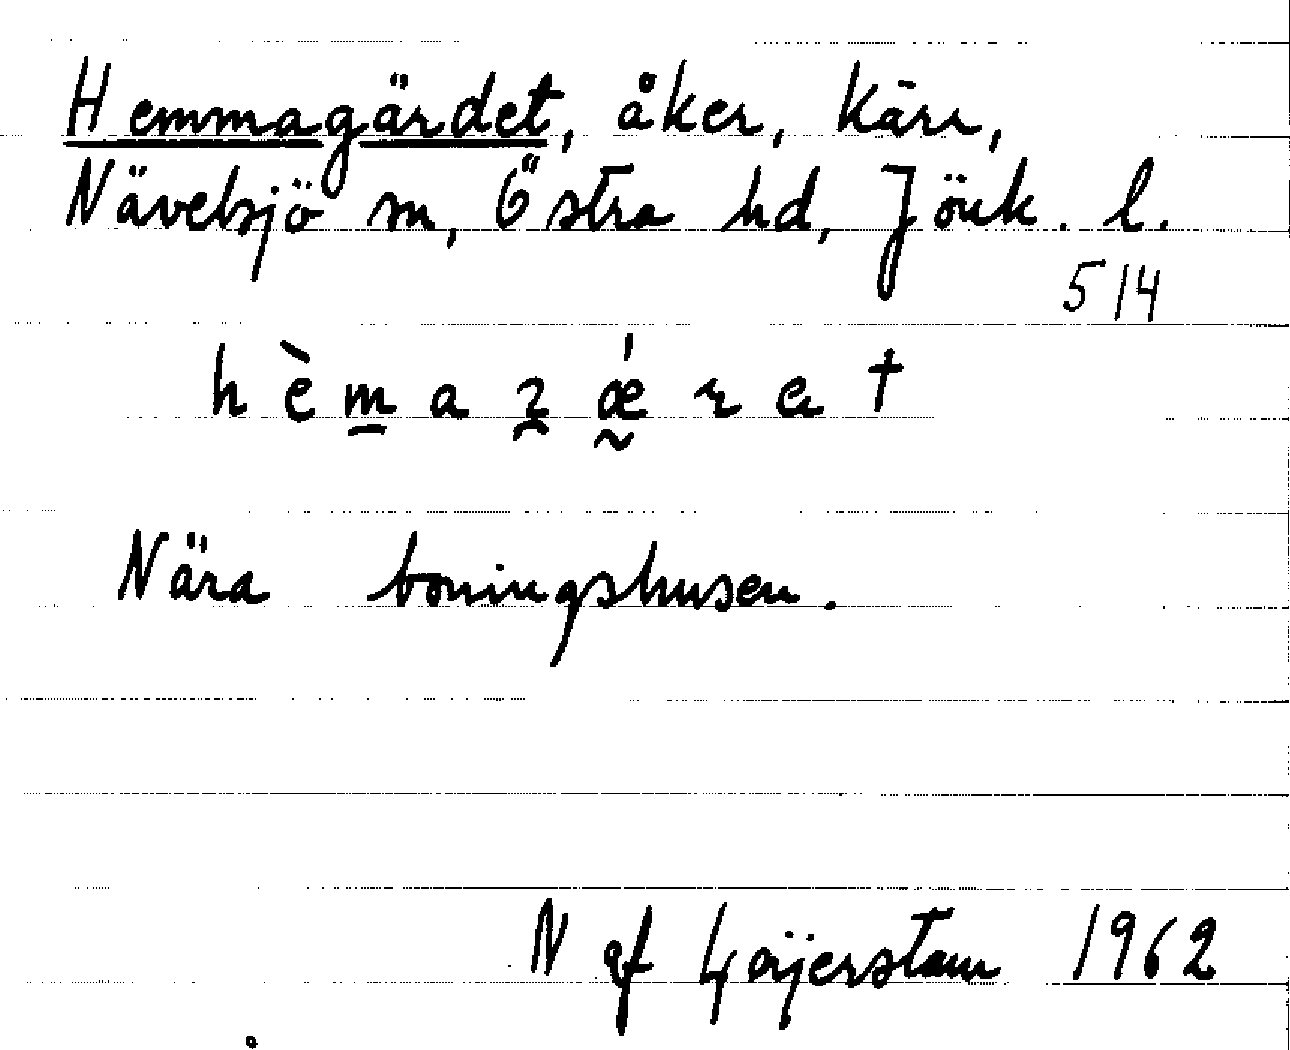 Hemmagärdet, åker, Kärr,
Nävelsjö sn, Östra hd, Jönk. l.
514
Nära boningshusen.
N af Geijerstam 1962